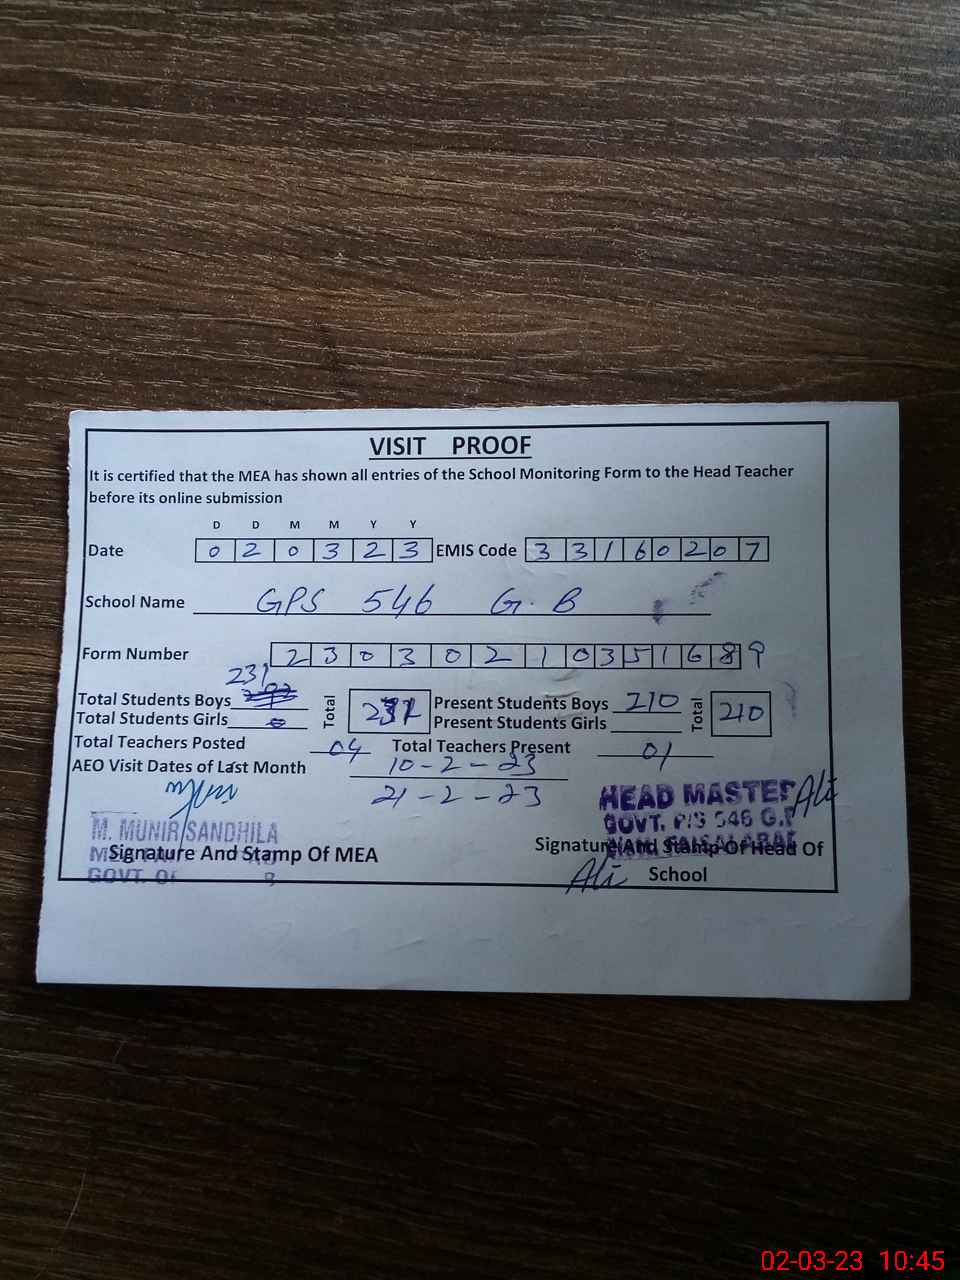 VISIT PROOF
It is certified that the MEA has shown all entries of the School Monitoring Form to the Head Teacher
before its online submission
D D M M Y Y
Date 0 2 0 3 2 3 EMIS Code 3 3 1 6 0 2 0 7
School Name GPS 546 G.B
Form Number 2 3 0 3 0 2 1 0 3 5 1 6 8 9
231
Total Students Boys Total 231 Present Students Boys 210 Total 210
Total Students Girls 0 Present Students Girls
Total Teachers Posted 04 Total Teachers Present 01
AEO Visit Dates of Last Month 10-2-23
21-2-23
HEAD MASTER Ali
M. MUNIR SANDHILA GOVT. P/S 546 G.B
Signature And Stamp Of MEA Signature And Stamp Of Head Of
GOVT. OF Ali School
02-03-23 10:45